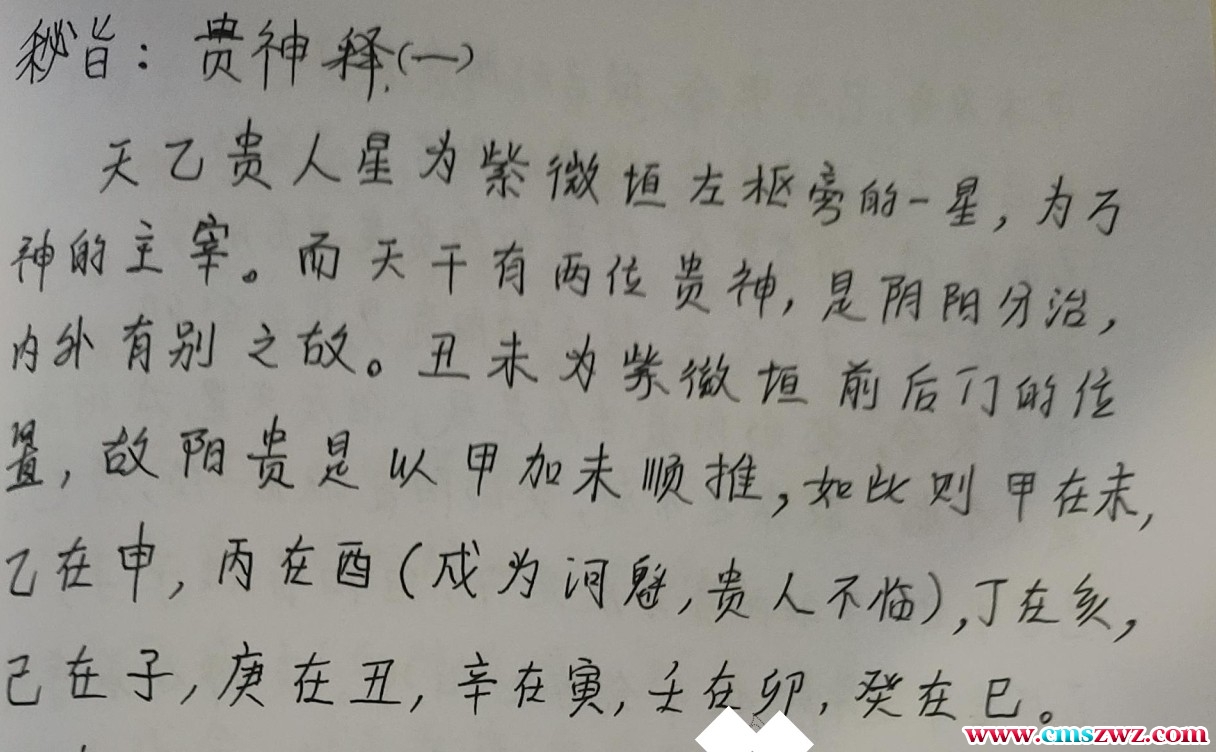 秘旨：贵神释(一)
天乙贵人星为紫微垣左枢旁的一星，为万
神的主宰。而天干有两位贵神，是阴阳分治，
内外有别之故。丑未为紫微垣前后门的位
置，故阳贵是以甲加未顺推，如此则甲在未，
乙在申，丙在酉(戌为河魁，贵人不临)，丁在亥，
己在子，庚在丑，辛在寅，壬在卯，癸在巳。
www.cmszwz.com